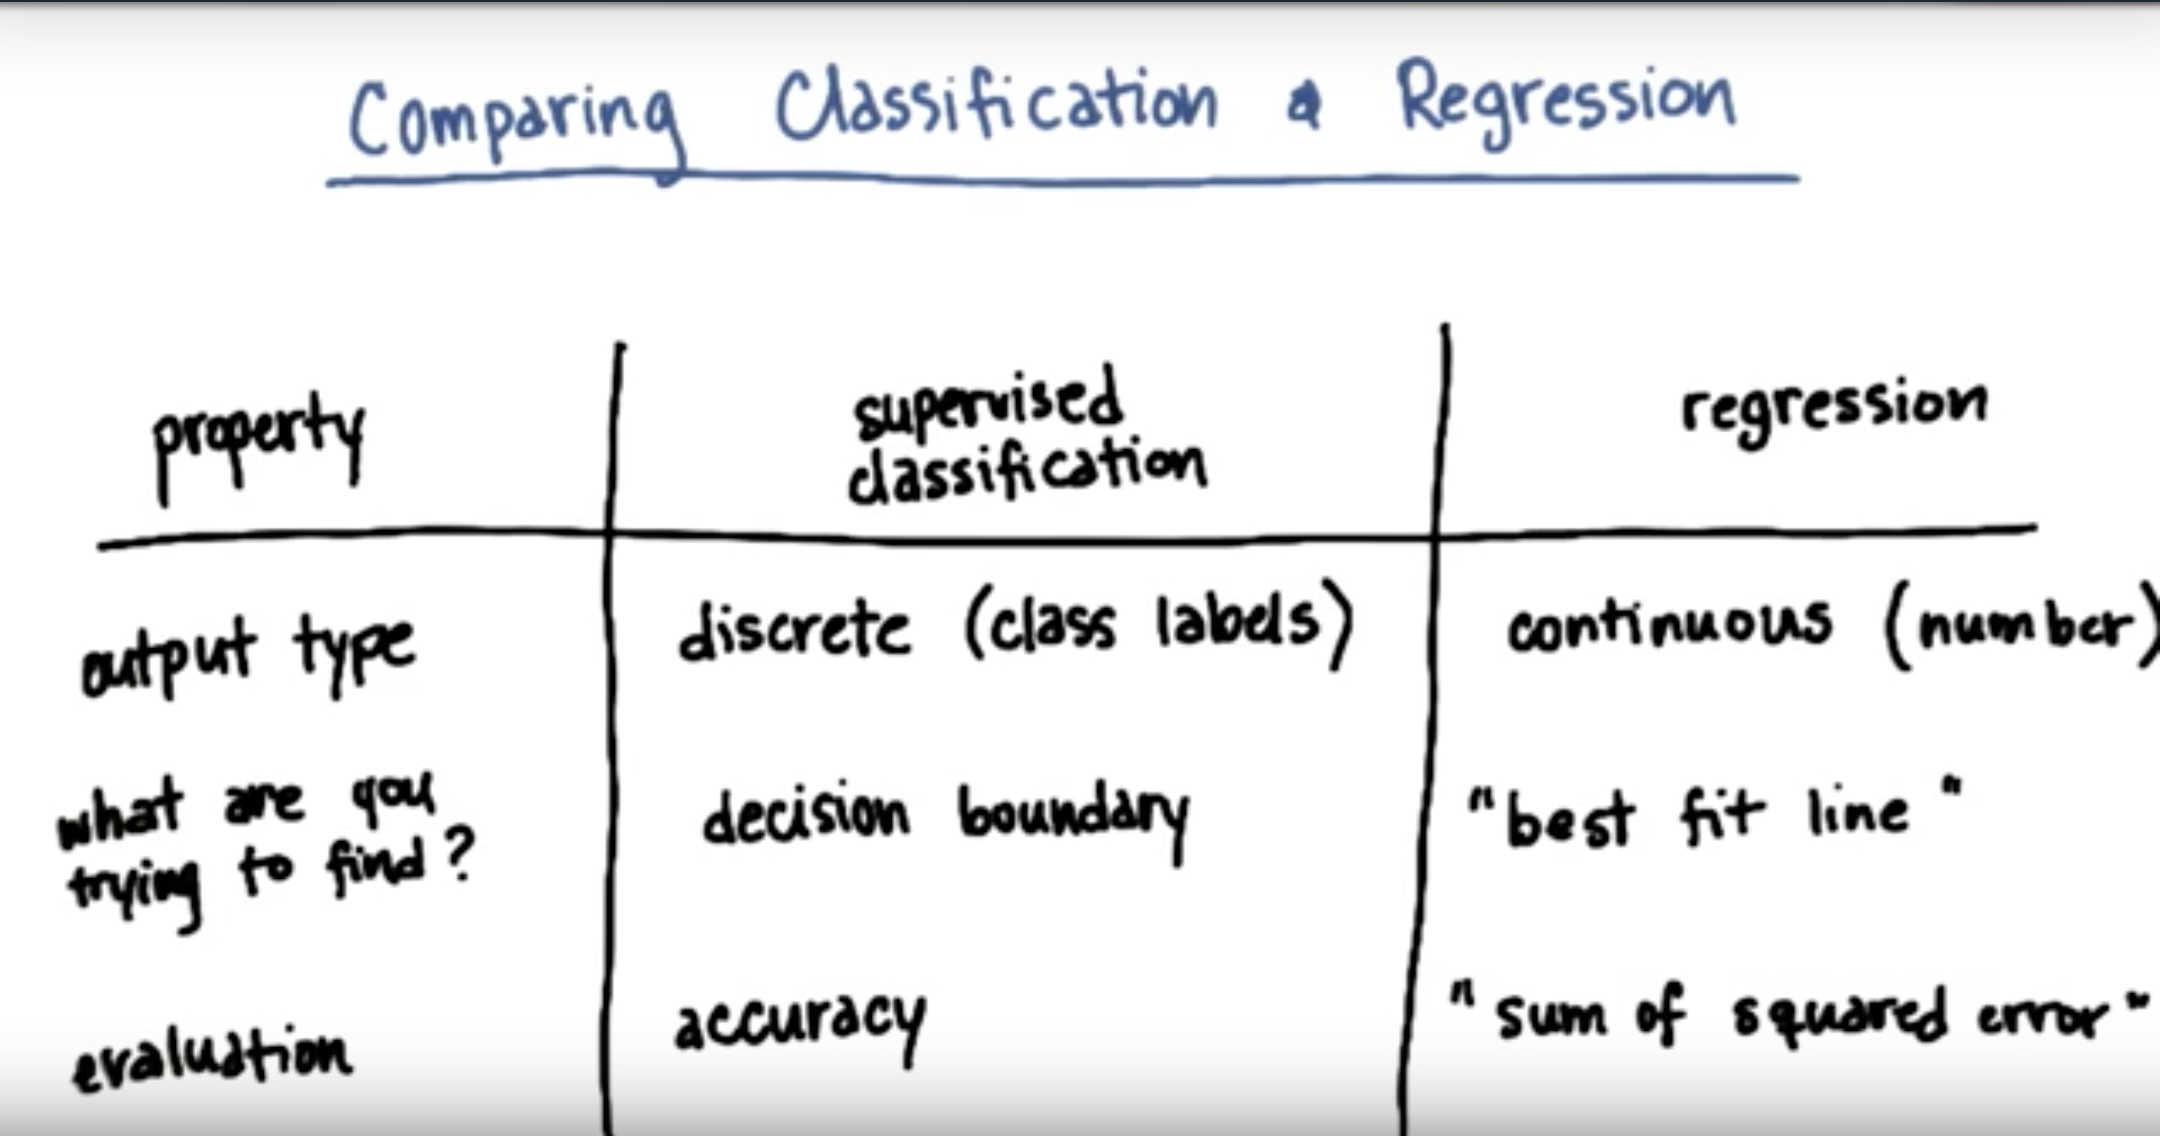 Comparing Classification & Regression
property
supervised
classification
regression
output type
discrete (class labels)
continuous (number)
what are you
trying to find?
decision boundary
"best fit line"
evaluation
accuracy
"sum of squared error"